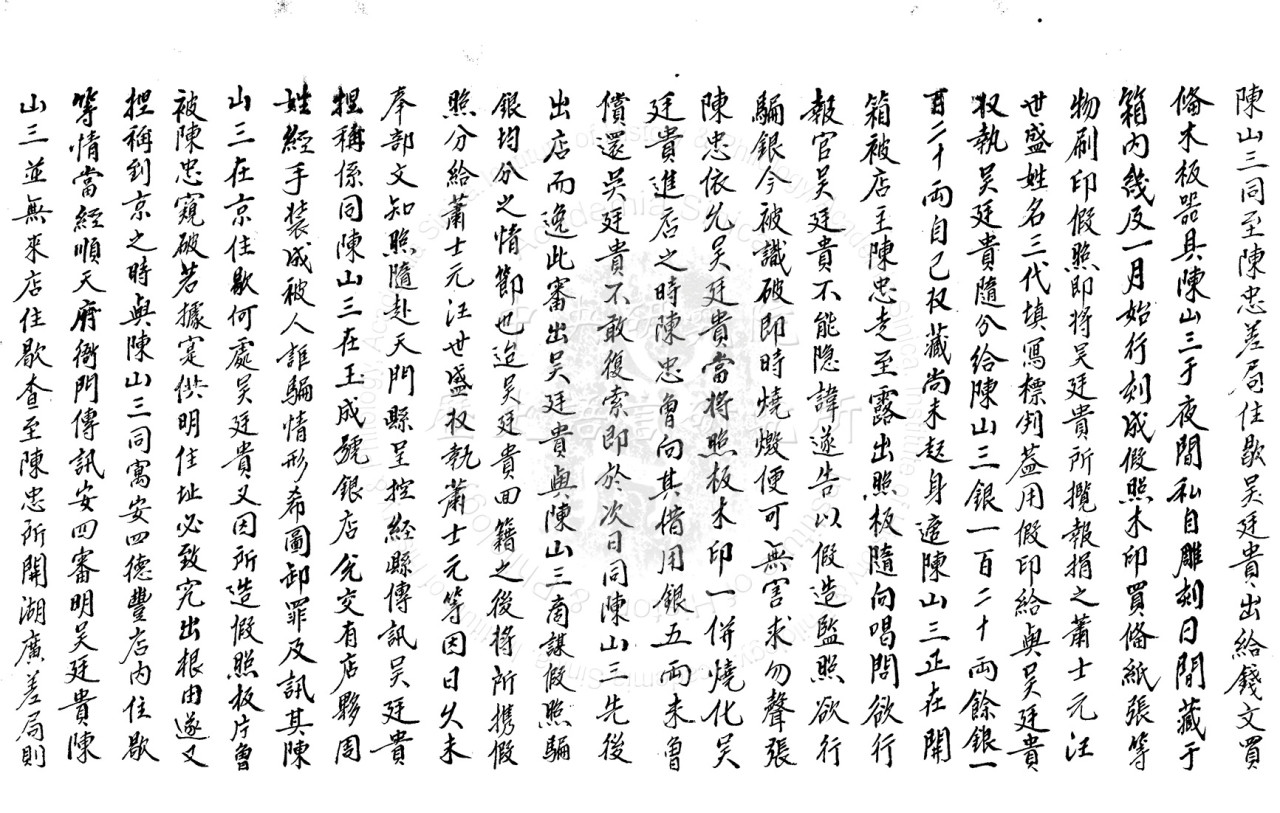 陳山三同至陳忠差局住歇吳廷貴出給錢文買
備木板器具陳山三于夜間私自雕刻日間藏于
箱內幾及一月始行刻成假照木印買備紙張等
物刷印假照即將吳廷貴所攬報捐之蕭士元汪
世盛姓名三代填寫標硃蓋用假印給與吳廷貴
收執吳廷貴隨分給陳山三銀一百二十両餘銀一
百二十両自己收藏尚未起身適陳山三正在開
箱被店主陳忠走至露出照板隨向喝問欲行
報官吳廷貴不能隐諱遂告以假造監照欲行
騙銀今被識破即時燒燬便可無害求勿聲張
陳忠依允吳廷貴當將照板木印一併燒化吳
廷貴進店之時陳忠曾向其借用銀五両未曾
償還吳廷貴不敢復索即於次日同陳山三先後
出店而逸此審出吳廷貴與陳山三商謀假照騙
銀均分之情節也迨吳廷貴回籍之後將所携假
照分給蕭士元汪世盛收執蕭士元等因日久未
奉部文知照隨赴天門縣呈控經縣傳訊吳廷貴
捏稱係同陳山三在玉成號銀店兌交有店夥周
姓經手裝成被人誆騙情形希圖卸罪及訊其陳
山三在京住歇何處吳廷貴又因所造假照板片曾
被陳忠窺破若據寔供明住址必致究出根由遂又
捏稱到京之時與陳山三同寓安四德豐店內住歇
等情當經順天府衙門傳訊安四審明吳廷貴陳
山三並無來店住歇查至陳忠所開湖廣差局則